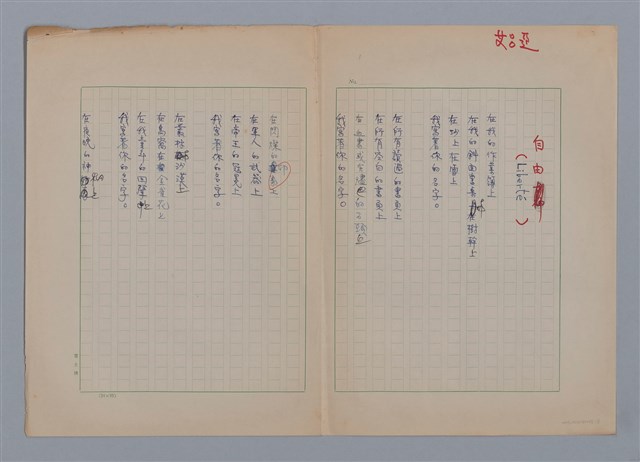 艾呂亞
自由
(Liberté)
在我的作業簿上
在我的斜面書桌和樹幹上
在沙上在雪上
我寫著你的名字。
在所有讀過的書頁上
在所有空白的書頁上
在
我寫著你的名字。
在閃爍的 上
在軍人的武器上
在帝王的冠冕上
我寫著你的名字。
在叢林 沙漠上
在鳥窩在金雀花上
在我童年的回聲上
我寫著你的名字。
在夜晚的神 上